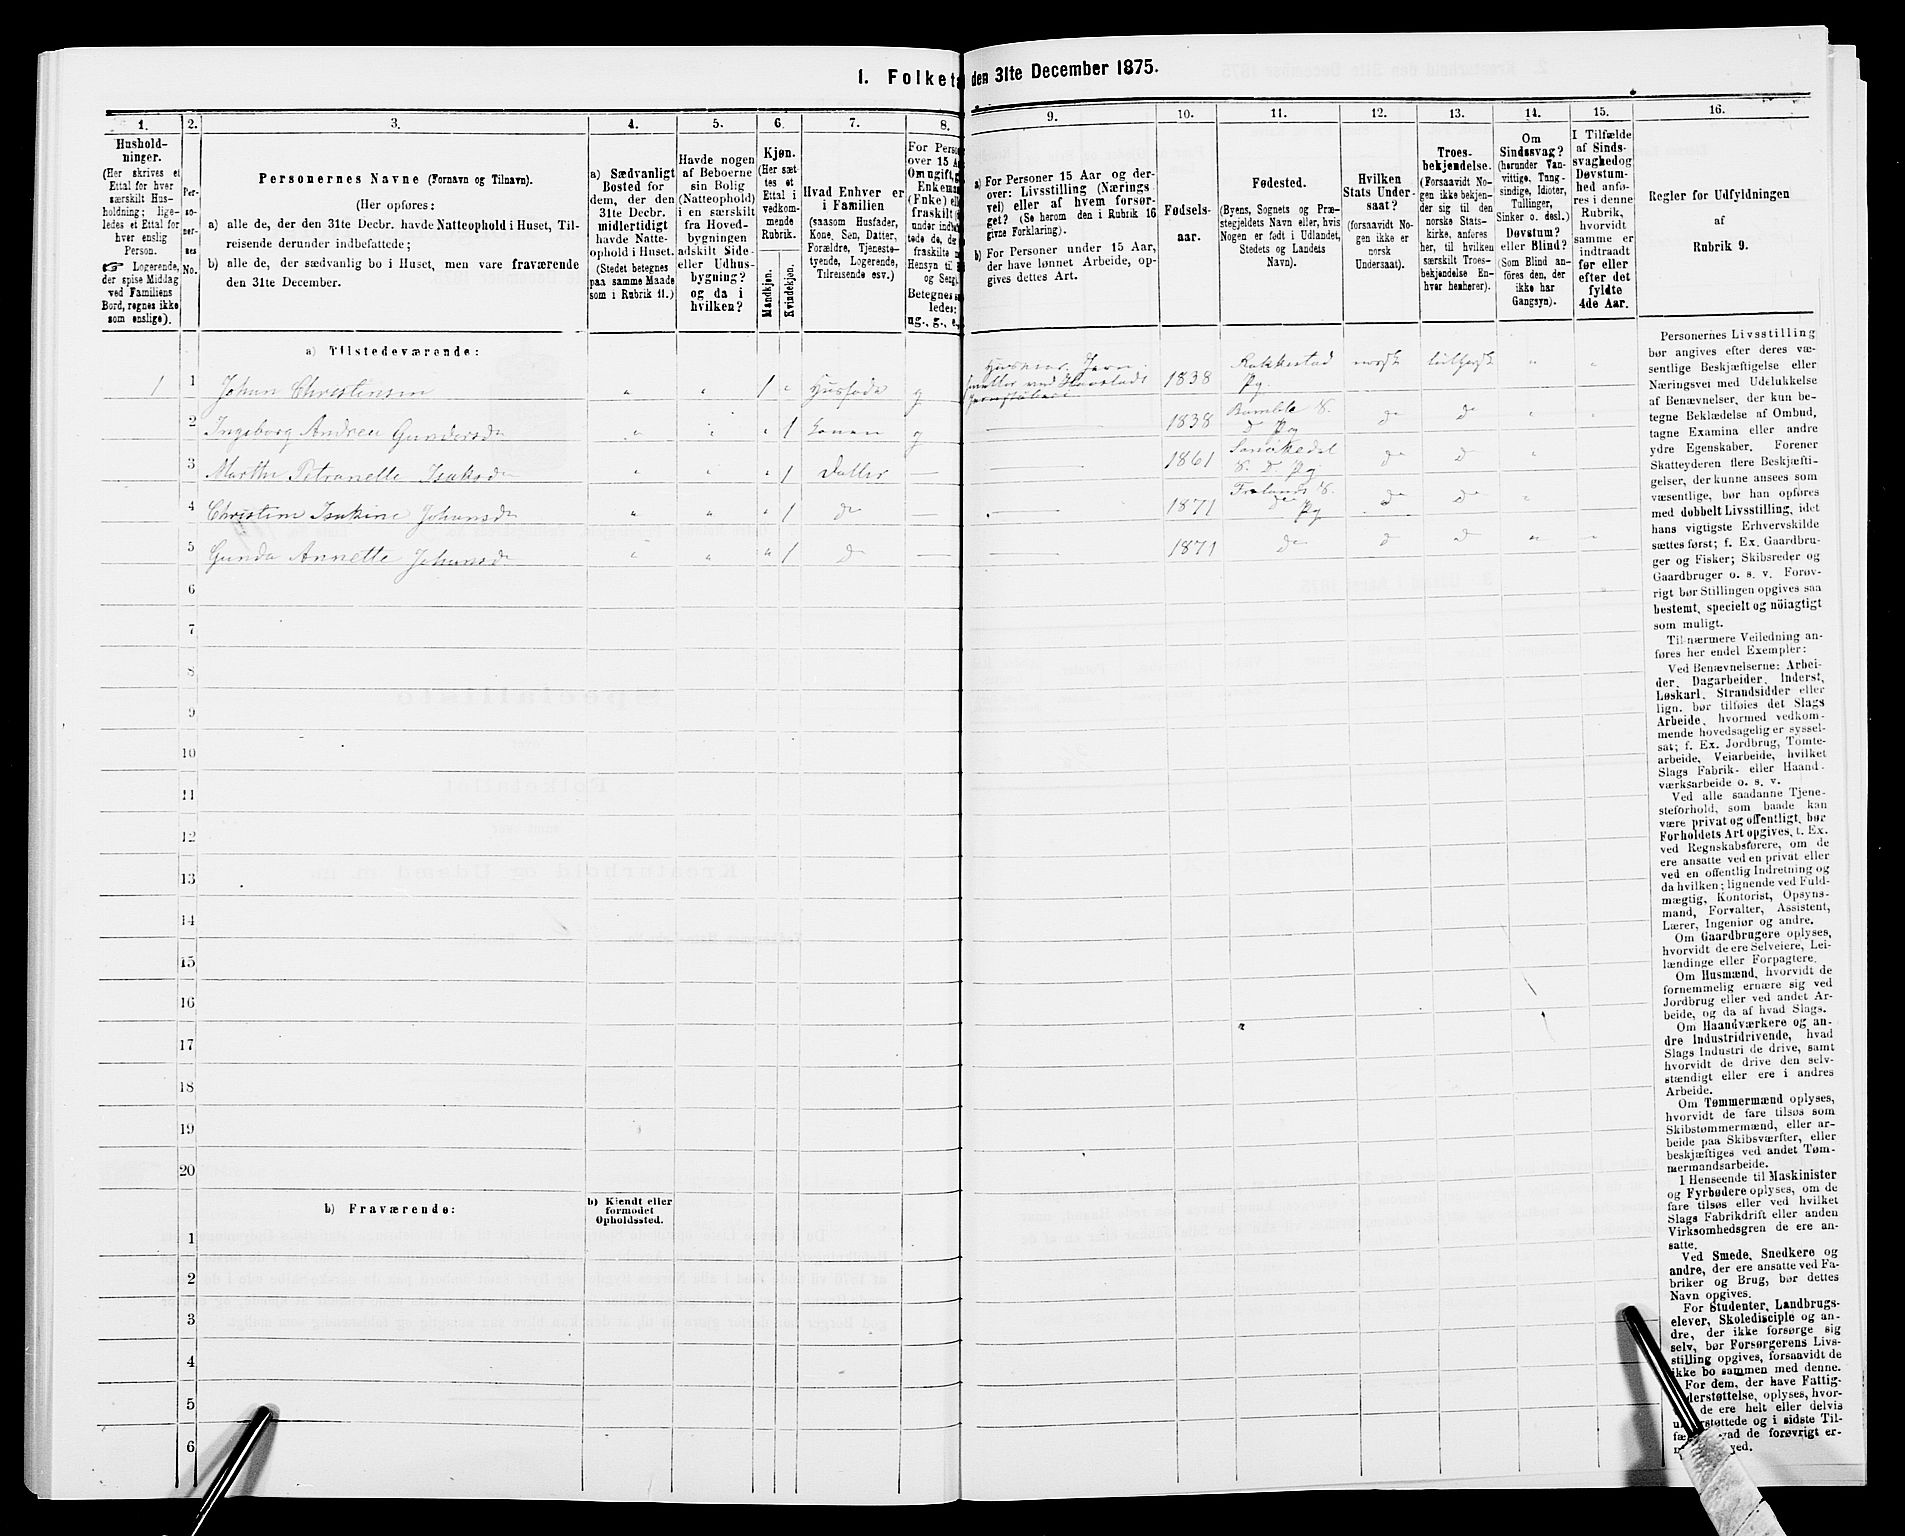 1. Folketa den 31te December 1875.
1. 2. 3. 4. 5. 6. 7. 8. 9. 10. 11. 12. 13. 14. 15. 16.
Hushold-
ninger.
(Her skrives et
Ettal for hver
særskilt Hus-
holdning; lige-
ledes et Ettal for
hver enslig
Person.
☞ Logerende,
der spise Middag
ved Familiens
Bord, regnes ikke
som enslige).
Per-
so-
ner-
nes
No.
Personernes Navne (Fornavn og Tilnavn).
(Her opføres:
a) alle de, der den 31te Decbr. havde Natteophold i Huset, Til-
reisende derunder indbefattede;
b) alle de, der sædvanlig bo i Huset, men vare fraværende
den 31te December.
a) Sædvanligt
Bosted for
dem, der den
31te Decbr.
midlertidigt
havde Natte-
ophold i Huset.
(Stedet betegnes
paa samme Maade
som i Rubrik 11.)
Havde nogen
af Beboerne
sin Bolig
(Natteophold)
i en særskilt
fra Hoved-
bygningen
adskilt Side-
eller Udhus-
bygning?
og da i
hvilken?
Kjøn.
(Her sæt
tes et
Ettal i
vedkom-
mende
Rubrik.
Mandkjøn.
Kvindekjøn.
Hvad Enhver er
i Familien
(saasom Husfader,
Kone, Søn, Datter,
Forældre, Tjeneste-
tyende, Logerende,
Tilreisende esv.)
For Perso
over 15 A
Om ugift, g
Enkema
(Fnke) el
fraskilt
under indbe
tede de, de
fraskilte
Hensyn til
og Seng).
Betegnes s
ledes:
ug., g., e.
a) For Personer 15 Aar og der-
over: Livsstilling (Nærings
vei) eller af hvem forsør-
get? (Se herom den i Rubrik 16
givne Forklaring).
b) For Personer under 15 Aar,
der have lønnet Arbeide, op-
gives dettes Art.
Fødsels-
aar.
Fødested.
(Byens, Sognets og Præ-
stegjeldets Navn eller, hvis
Nogen er født i Udlandet,
Stedets og Landets
Navn).
Hvilken
Stats Under-
saat?
(forsaavidt No-
gen ikke er
norsk
Undersaat).
Troes-
bekjendelse.
(Forsaavidt No-
gen ikke bekjen-
der sig til den
norske Stats-
kirke, anføres
her, til hvilken
særskilt Troes-
bekjendelse En-
hver henhører).
Om
Sindssvag?
(herunder Van-
vittige, Tung-
sindige, Idioter,
Tullinger,
Sinker o. desl.)
Døvstum?
eller Blind?
(Som Blind an-
føres den, der
ikke har
Gangsyn).
I Tilfælde
af Sinds-
svaghed og
Døvstum-
hed anfø-
res i denne
Rubrik,
hvorvidt
samme er
indtraadt
før eller
efter det
fyldte
4de Aar.
Regler for Udfyldningen
af
Rubrik 9.
a) Tilstedeværende:
1 1 Johan Christensen " " 1 " Husfader g 1838 Rakkestad Pg. norsk luthersk " "
2 Ingeborg Andrea Gundersdr " " " 1 Konen g — 1838 Bamble S. d Pg do do " "
3 Marthe Petronelle Isaksdr " " " 1 Datter — — 1861 Sanøkedel S. D. Pg do d "
4 Christine Isakine Johansdr " " " 1 do — — 1871 Frolands S. do Pg do do "
5 Gunda Annette Johansdr " " " 1 do — — 1871 do d d " "
6
7
8
9
10
11
12
13
14
15
16
17
18
19
20
b) Fraværende:
b) Kjendt eller
formodet
Opholdssted.
1
2
3
4
5
6
Personernes Livsstilling
bør angives efter deres væ-
sentlige Beskjæftigelse eller
Næringsvei med Udelukkelse
af Benævnelser, der kun be-
tegne Beklædelse af Ombud,
tagne Examina eller andre
ydre Egenskaber. Forener
Skatteyderen flere Beskjæfti-
gelser, der kunne ansees som
væsentlige, bør han opføres
med dobbelt Livsstilling, idet
hans vigtigste Erhvervskilde
sættes først; f. Ex. Gaardbru-
ger og Fisker; Skibsreder og
Gaardbruger o. s. v. Forøv-
rigt bør Stillingen opgives saa
bestemt, specielt og nöiagtigt
som muligt.
Til nærmere Veiledning an-
føres her endel Exempler:
Ved Benævnelserne: Arbei-
der, Dagarbeider, Inderst,
Løskarl, Strandsidder eller
lign. bør tilføies det Slags
Arbeide, hvormed vedkom-
mende hovedsagelig er syssel-
sat; f. Ex. Jordbrug, Tomte-
arbeide, Veiarbeide, hvilket
Slags Fabrik- eller Haand-
værksarbeide o. s. v.
Ved alle saadanne Tjene-
steforhold, som baade kan
være privat og offentligt, bør
Forholdets Art opgives, t. Ex.
ved Regnskabsførere, om de
ere ansatte ved en privat eller
ved en offentlig Indretning og
da hvilken; lignende ved Fuld-
mægtig, Kontorist, Opsyns-
mand, Forvalter, Assistent,
Lærer, Ingeniør og andre.
Om Gaardbrugere oplyses,
hvorvidt de ere Selveiere, Lei-
lændinge eller Forpagtere.
Om Husmænd, hvorvidt de
fornemmelig ernære sig ved
Jordbrug eller ved andet Ar-
beide, og da af hvad Slags.
Om Haandværkere og an-
dre Industridrivende, hvad
Slags Industri de drive, samt
hvorvidt de drive den selv-
stændigt eller ere i andres
Arbeide.
Om Tømmermænd oplyses,
hvorvidt de fare tilsøs som
Skibstømmermænd, eller ar-
beide paa Skibsværfter, eller
beskjæftiges ved andet Tøm-
mermandsarbeide.
I Henseende til Maskinister
og Fyrbødere oplyses, om de
fare tilsøs eller ved hvilket
Slags Fabrikdrift eller anden
Virksomhedsgren de ere an-
satte.
Ved Smede, Snedkere og
andre, der ere ansatte ved Fa-
briker og Brug, bør dettes
Navn opgives.
For Studenter, Landbrugs-
elever, Skoledisciple og an-
dre, der ikke forsørge sig
selv, bør Forsørgerens Livs-
stilling opgives, forsaavidt de
ikke bo sammen med denne.
For dem, der have Fattig-
derstøttelse, oplyses, hvor-
de ere helt eller delvis
rstøttede og i sidste Til-
vad de forøvrigt er-
ved.